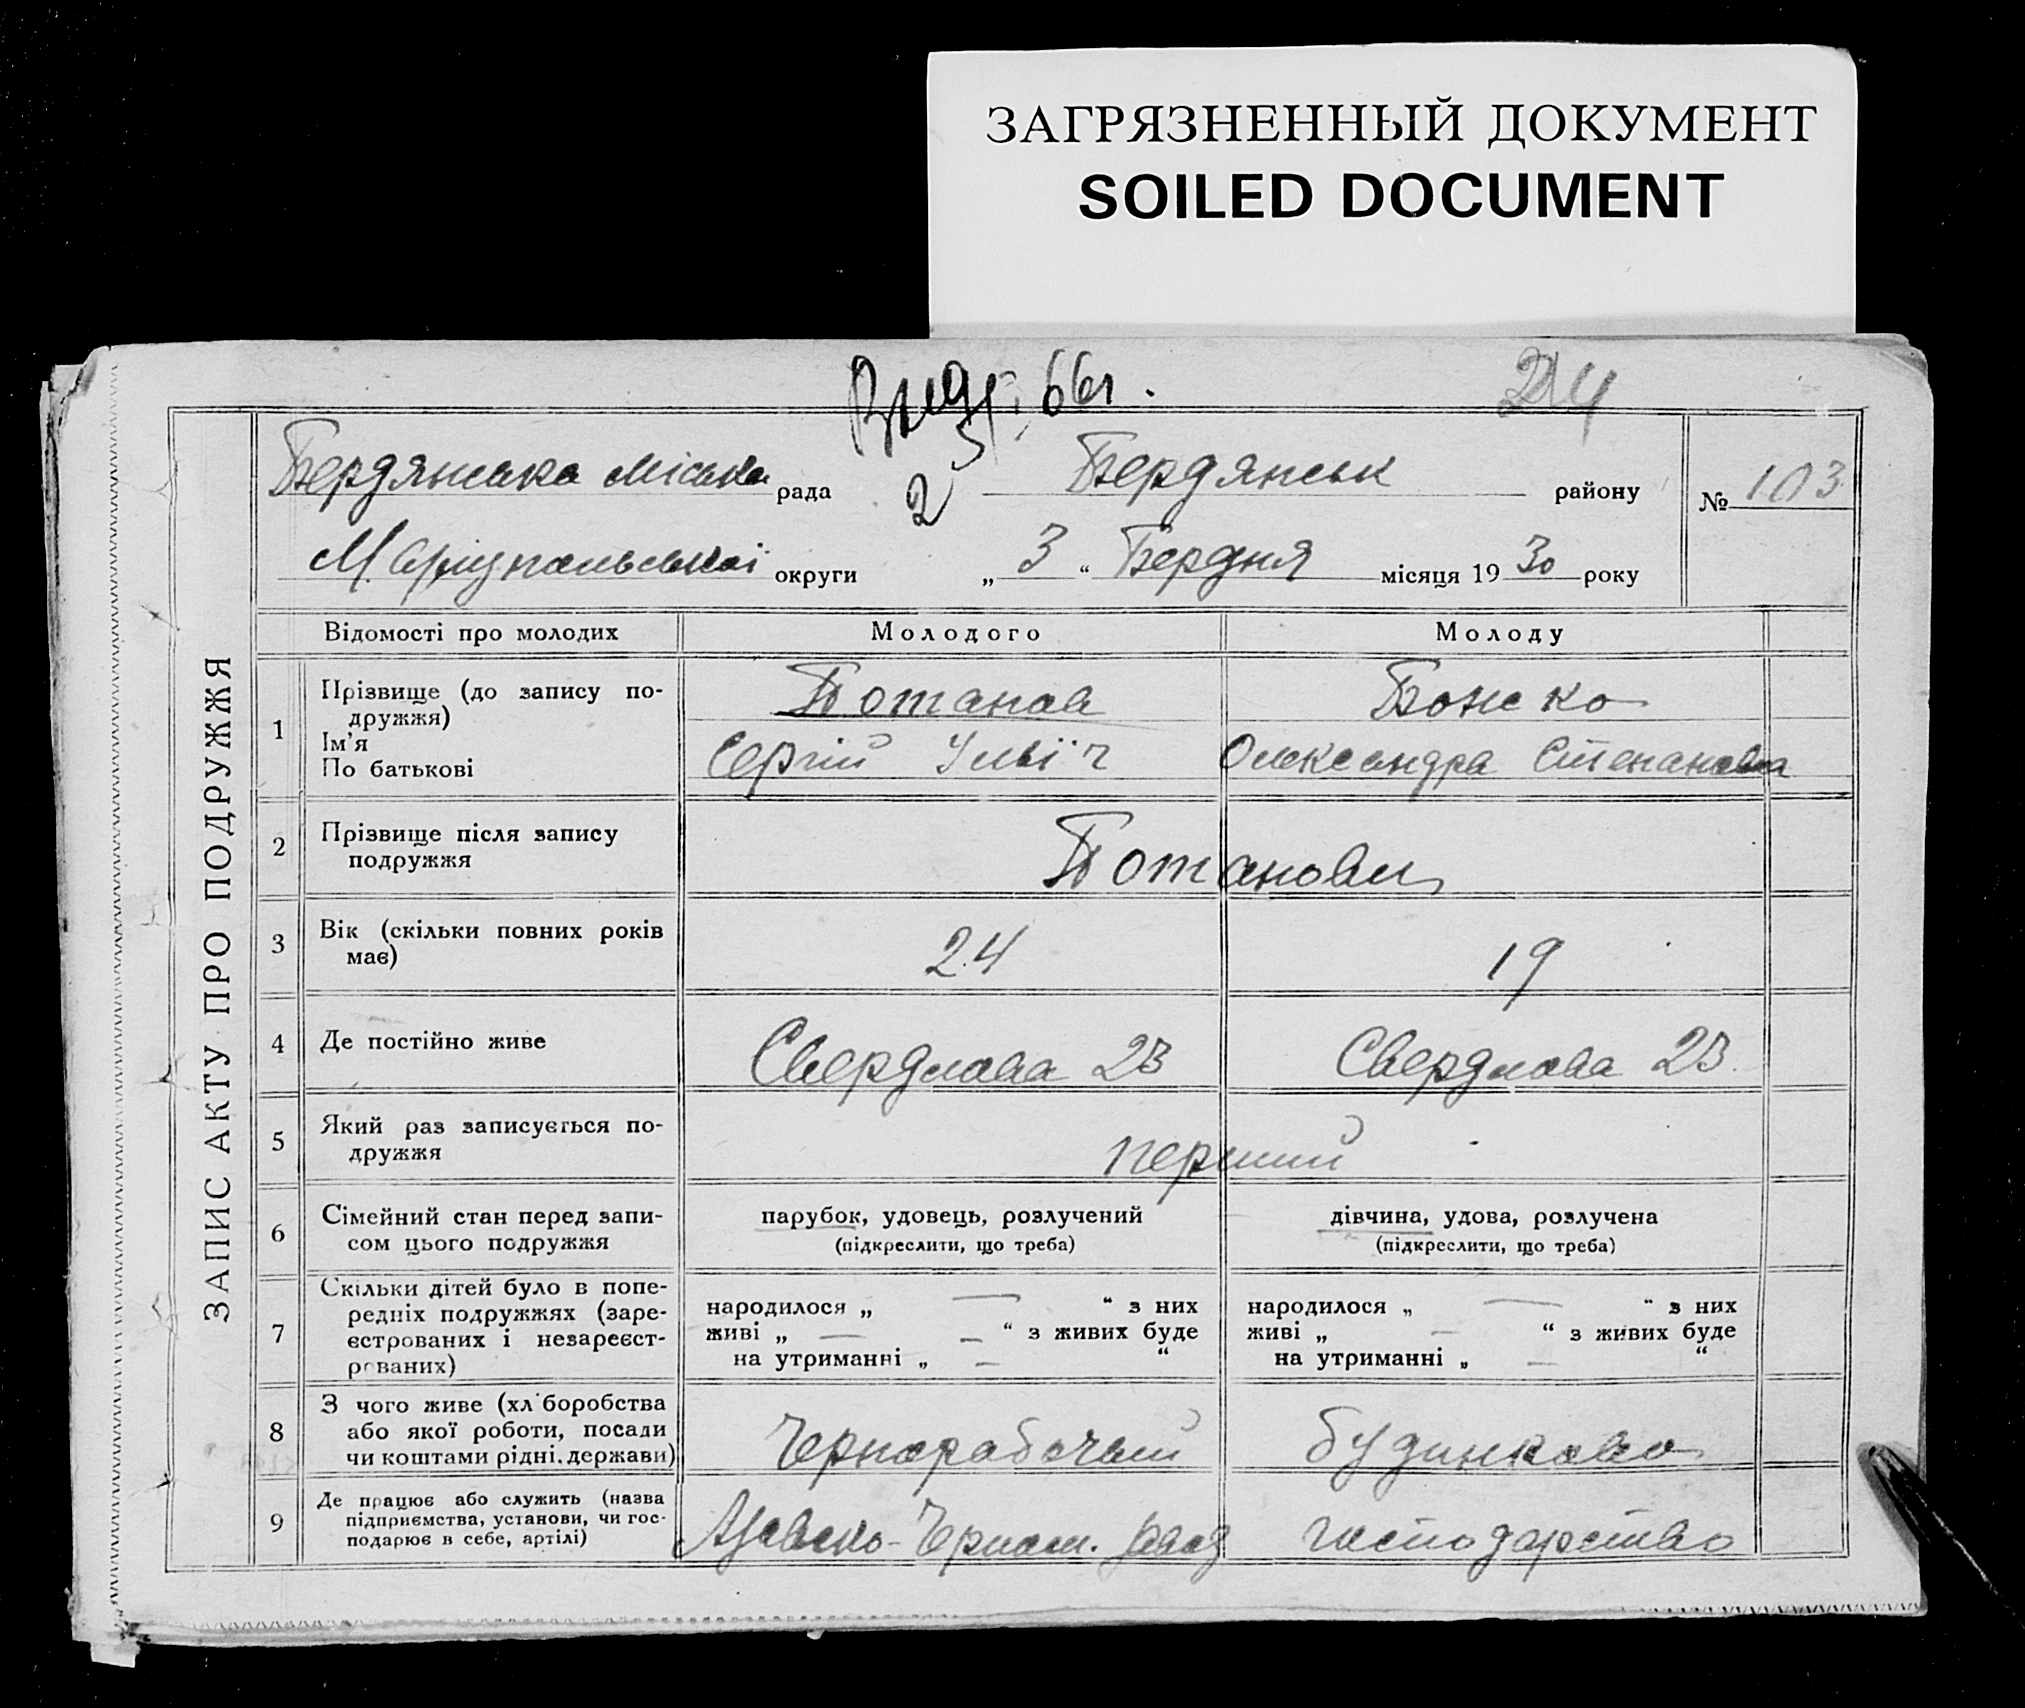 ЗАГРЯЗНЕННЫЙ ДОКУМЕНТ
SOILED DOCUMENT
66 г.
24
Бердянська міська рада
2
Бердянськ району
№ 103
Маріупольської округи
„ 3 “ Бердня місяця 1930 року
ЗАПИС АКТУ ПРО ПОДРУЖЖЯ
Відомості про молодих
Молодого
Молоду
1
Прізвище (до запису по-
дружжя)
Ім'я
По батькові
Потапов
Сергій Ілліч
Божко
Олександра Степанова
2
Прізвище після запису
подружжя
Потапови
3
Вік (скільки повних років
має)
24
19
4
Де постійно живе
Свердлова 23
Свердлова 23
5
Який раз записується по-
дружжя
перший
6
Сімейний стан перед запи-
сом цього подружжя
парубок, удовець, розлучений
(підкреслити, що треба)
дівчина, удова, розлучена
(підкреслити, що треба)
7
Скільки дітей було в попе-
редніх подружжях (заре-
єстрованих і незареєст-
рованих)
народилося „ — “ з них
живі „ — — “ з живих буде
на утриманні „ — “
народилося „ — “ з них
живі „ — “ з живих буде
на утриманні „ — “
8
З чого живе (хліборобства
або якої роботи, посади
чи коштами рідні, держави)
Чернорабочий
будинково
9
Де працює або служить (назва
підприємства, установи, чи гос-
подарює в себе, артілі)
Азовсько-Черном. завод
господарство